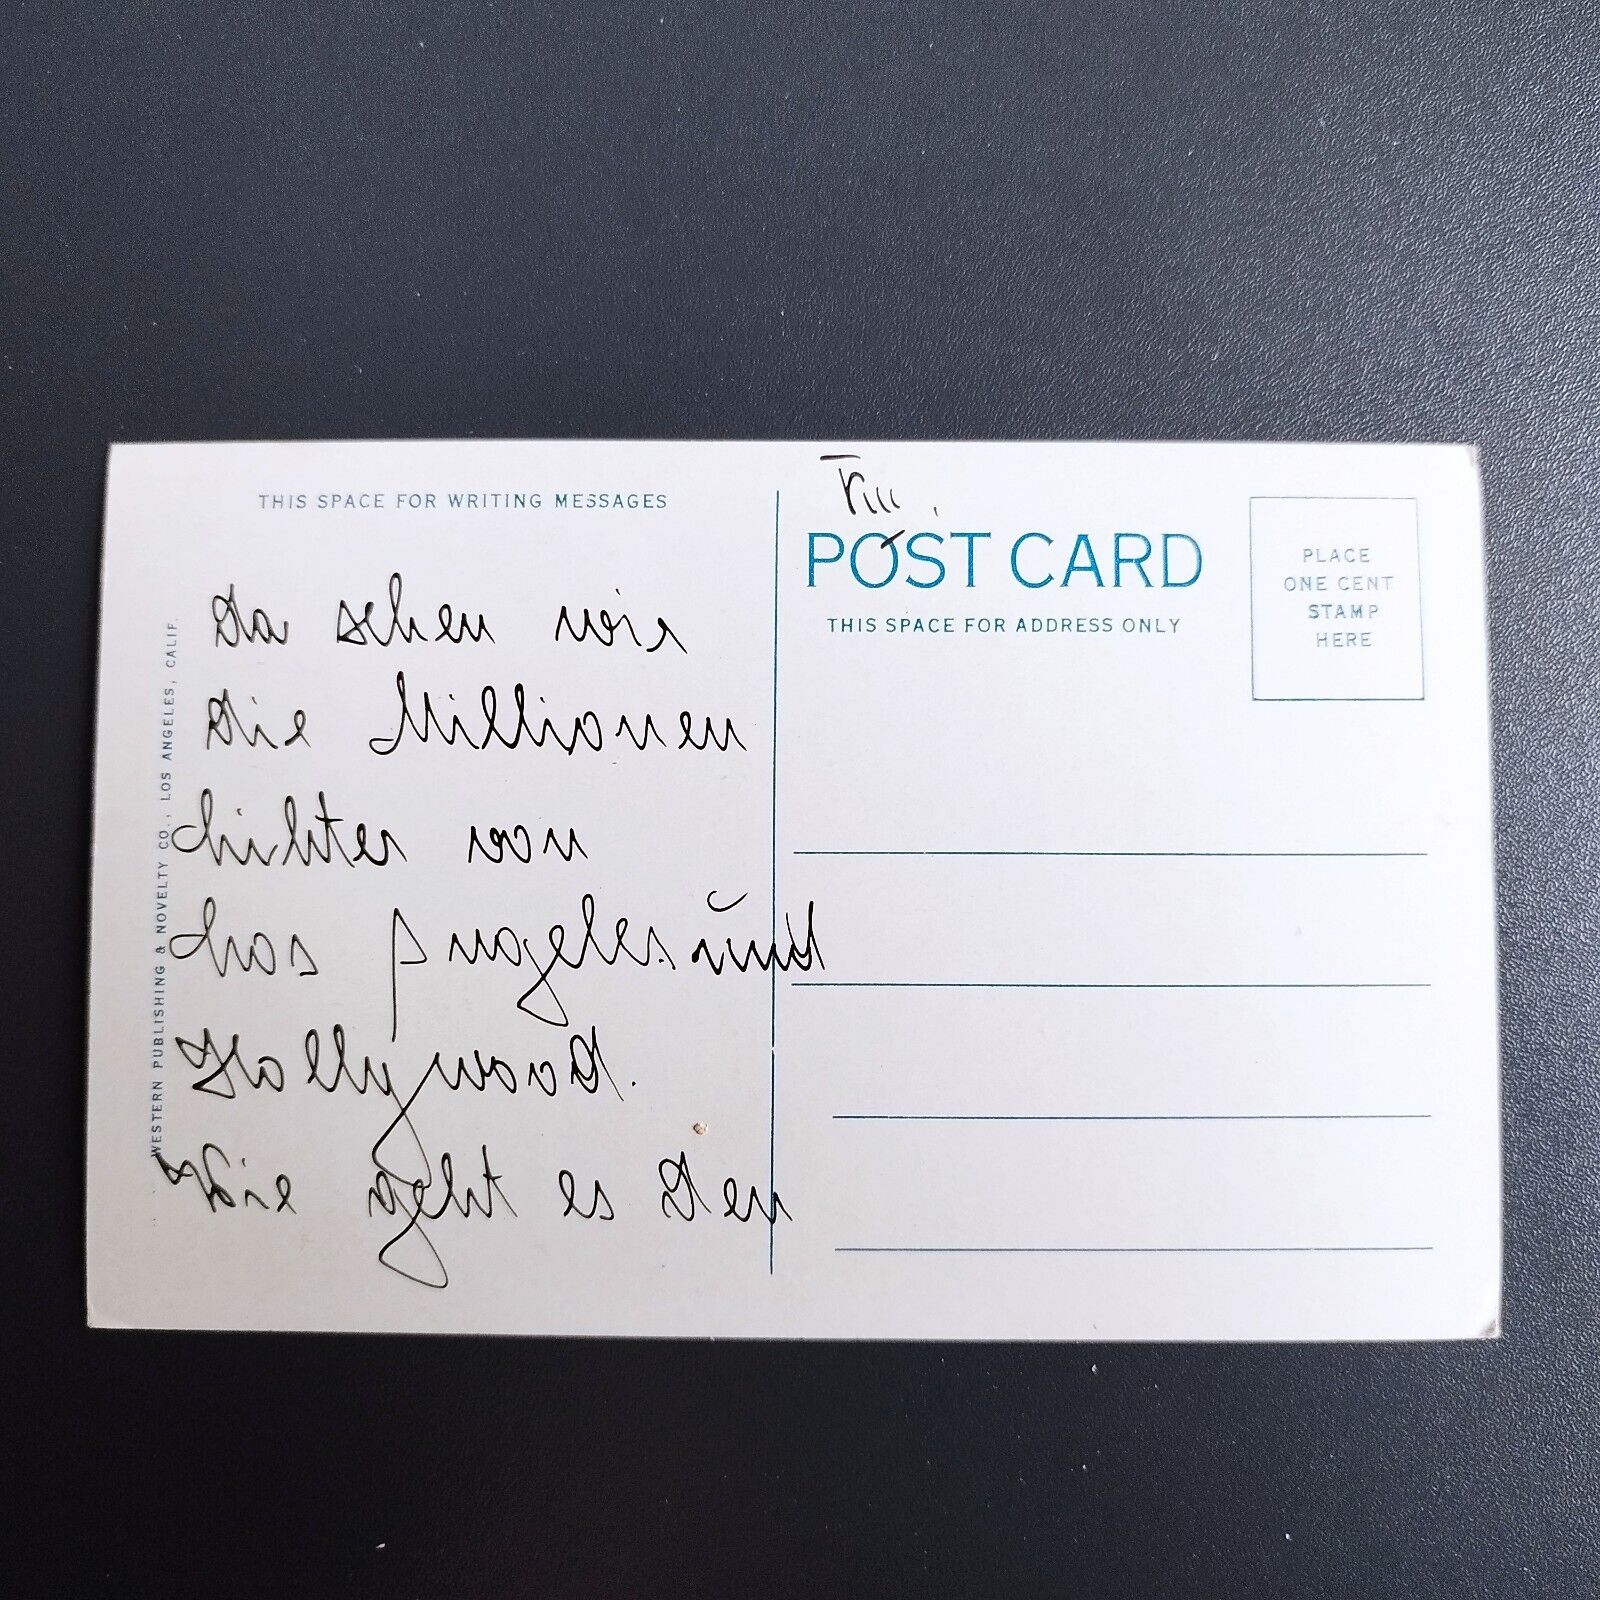 THIS SPACE FOR WRITING MESSAGES
Da sehen wir
die Millionen
Lichter von
Los Angeles und
Hollywood.
Wie geht es den
WESTERN PUBLISHING & NOVELTY CO., LOS ANGELES, CALIF.
VIII.
POST CARD
THIS SPACE FOR ADDRESS ONLY
PLACE
ONE CENT
STAMP
HERE